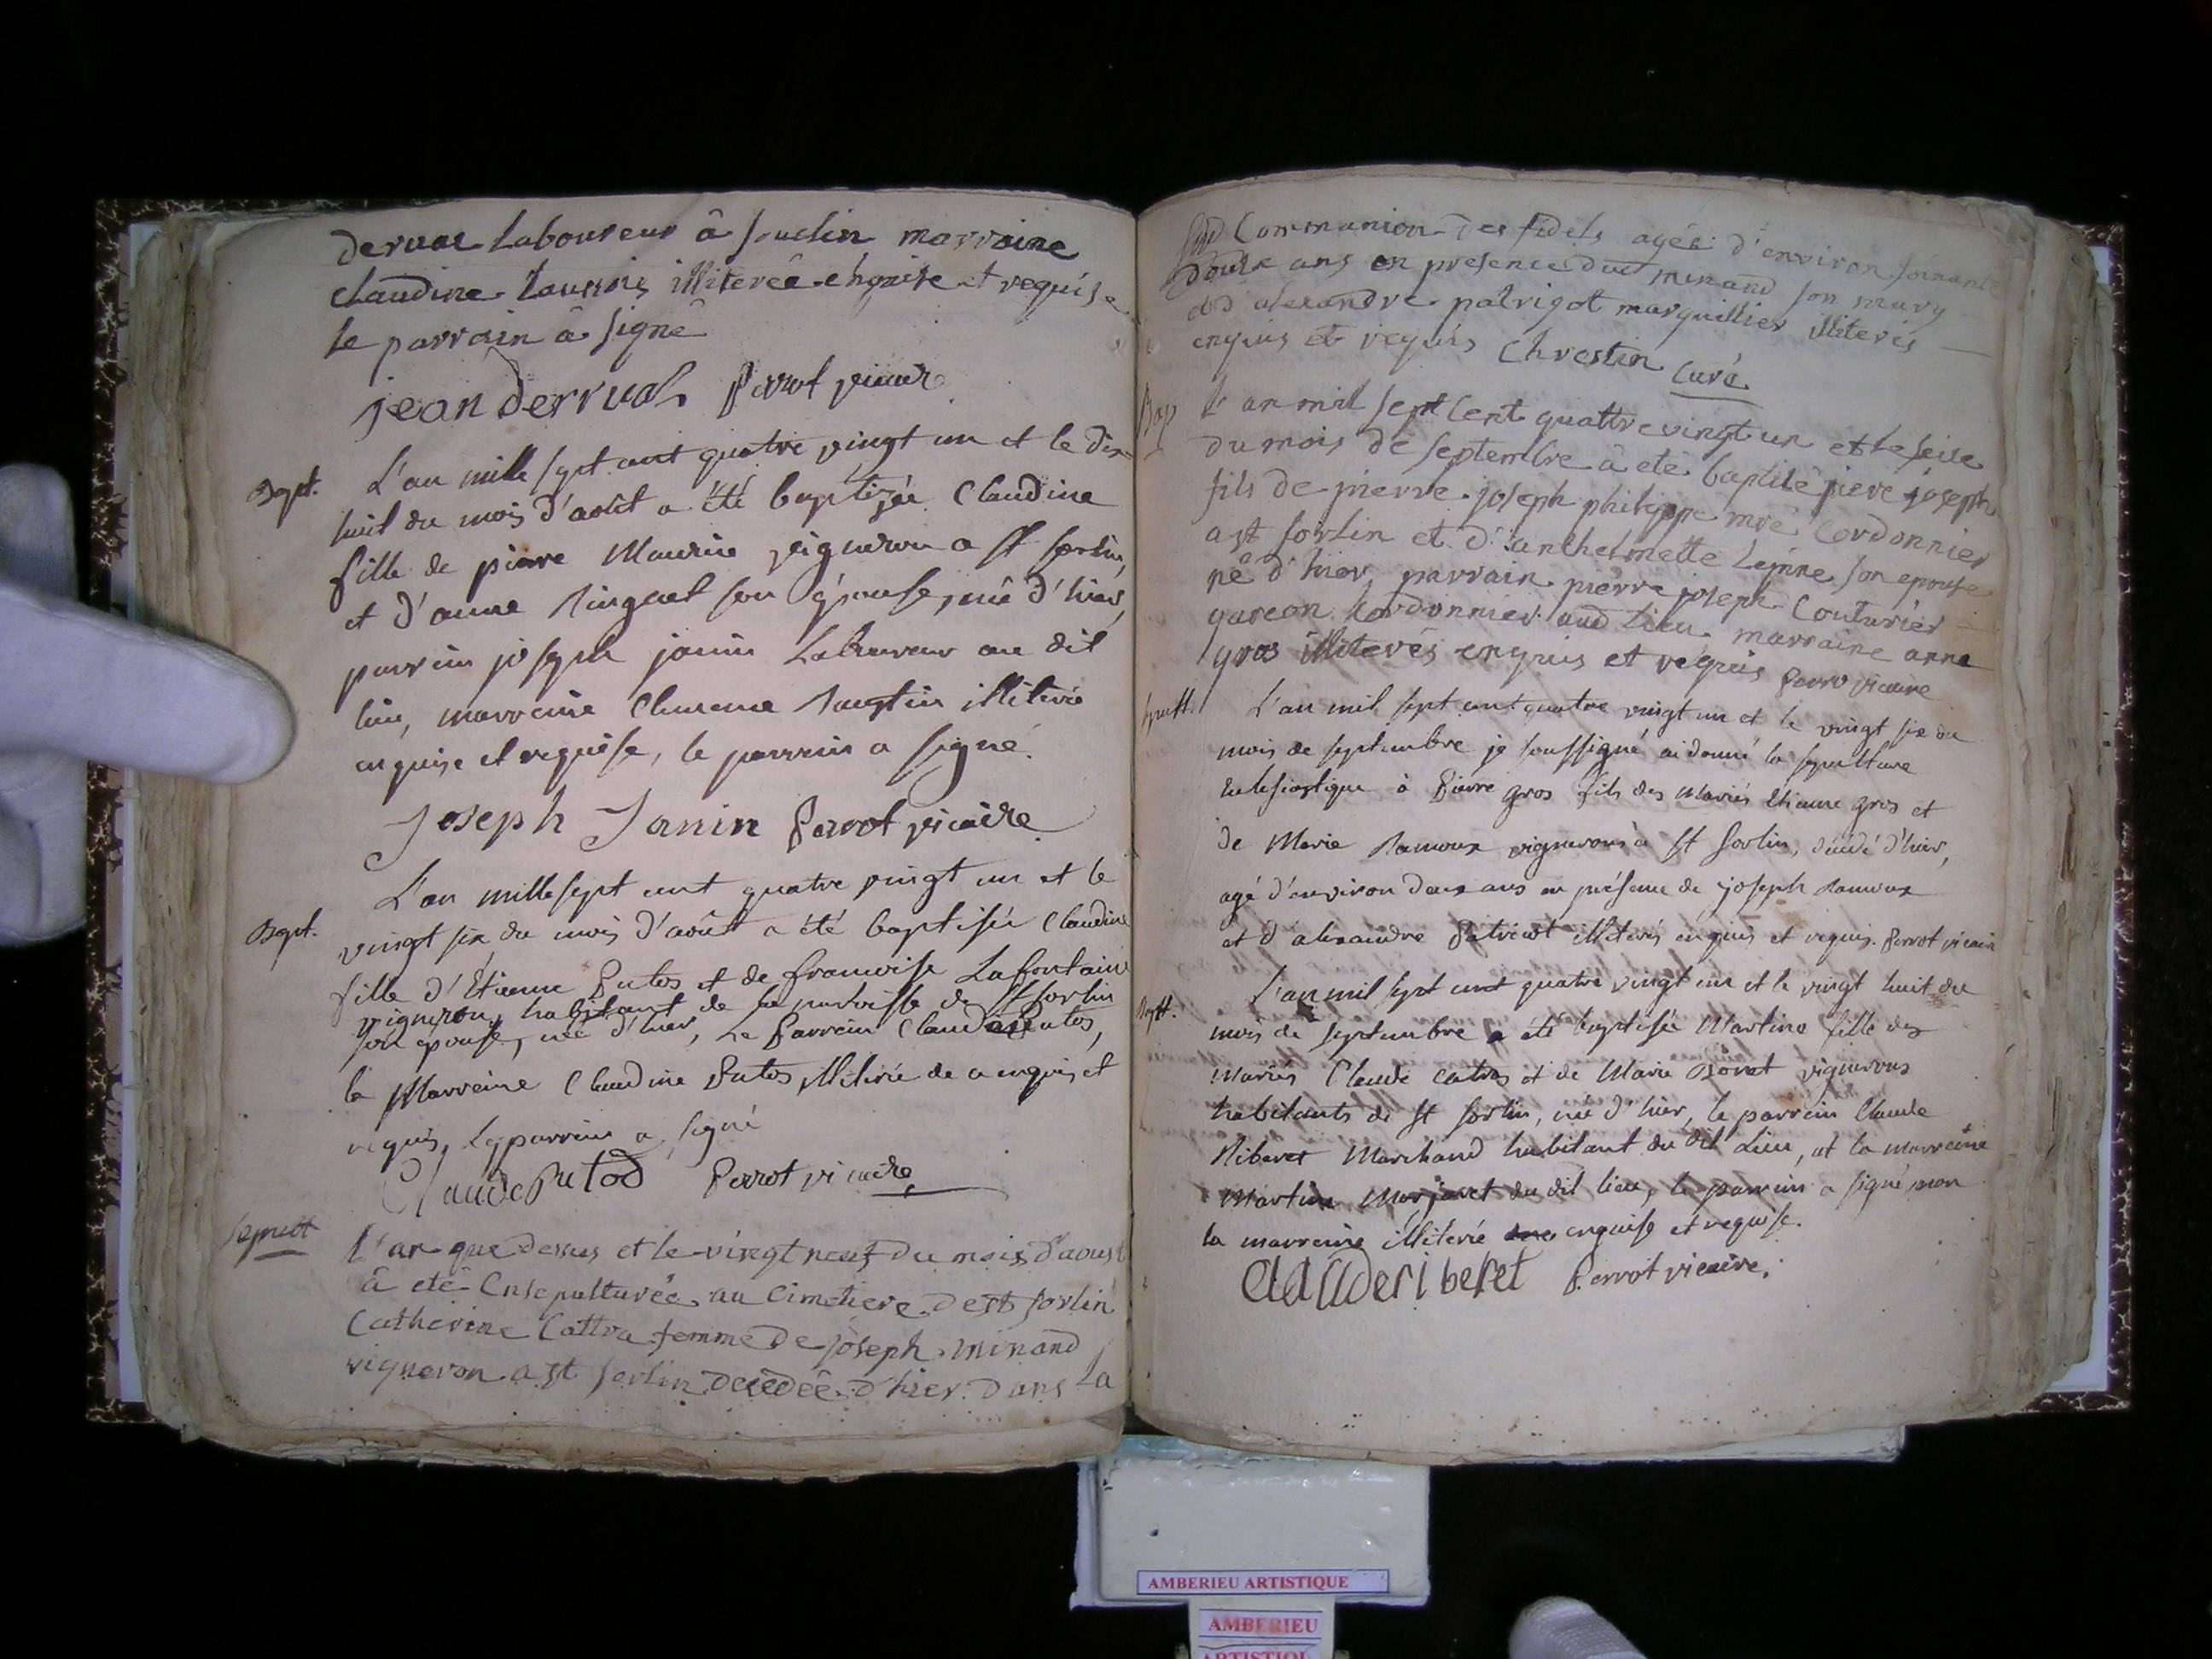 derual Laboureur â souclin marraine
Claudine illiterêe enquise et requise
le parrain â signê
jean derrual Perrot vicaire
Bapt. L'an mille sept cent quatre vingt un et le dix
huit du mois d'août a été baptizée Claudine
fille de pierre Maurin vigneron a St sorlin,
et d'anne son épouse, née d'hier,
parrain joseph janin Laboureur au dit
lieu, marraine illiterée
enquise et requise, le parrain a signé.
Joseph Janin Perrot vicaire
Bapt. L'an mille sept cent quatre vingt un et le
vingt six du mois d'août a été baptisée Claudine
fille d'Étienne Putos et de francoise Lafontaine
vigneron, habitant de la paroisse de St sorlin
son épouse, née d'hier, Le Parrain Claude Putos,
la Marraine Claudine Putos illiterée de ce enquis et
requis, Le parrain a signé
Claude Putod Perrot vicaire
Sepult L'an que dessus et le vingt neuf du mois d'aoust
â etê Ensepulturêe au Cimetiere de st sorlin
Catherine Cottra femme De joseph minand
vigneron a st sorlin decêdêe d'hier Dans La
Communion Des fidels agée d'environ soixante
Douze ans en presence dud minand son mary
et d'alexandre patrigot marguillier illiterés
enquis et requis Chrestin Curé
Bap L'an mil sept Cent quattre vingt un et le seise
du mois de septembre â etê baptisê piere joseph
fils de pierre joseph philippe mre Cordonnier
a st sorlin et d'anthelmette Lepine son epouse
nê d'hier, parrain pierre joseph Couturier
garcon Cordonnier aud Lieu marraine anne
gros illiterés enquis et requis Perro vicaire
Sepult. L'an mil sept cent quatre vingt un et le vingt six du
mois de septembre je soussigné ai donné la sepulture
Eclesiastique à Pierre gros fils des Mariés Etienne gros et
de Marie Ramoux vignerons à St Sorlin, décédé d'hier,
agé d'environ deux ans en présence de joseph Ramoux
et d'alexandre Patricot illiterés enquis et requis. Perrot vicaire
Bapt. L'an mil sept cent quatre vingt un et le vingt huit du
mois de septembre a été baptisée Martine fille des
Mariés Claude Catras et de Marie Bônet vignerons
habitants de St Sorlin, née d'hier, le parrain Claude
Riberet Marchand habitant du dit Lieu, et la marraine
Martine Marjaret du dit lieu, le parrain a signé non
la marraine illiterée enquise et requise.
Clauderiberet Perrot vicaire.
AMBERIEU ARTISTIQUE
AMBERIEU
ARTISTIQUE